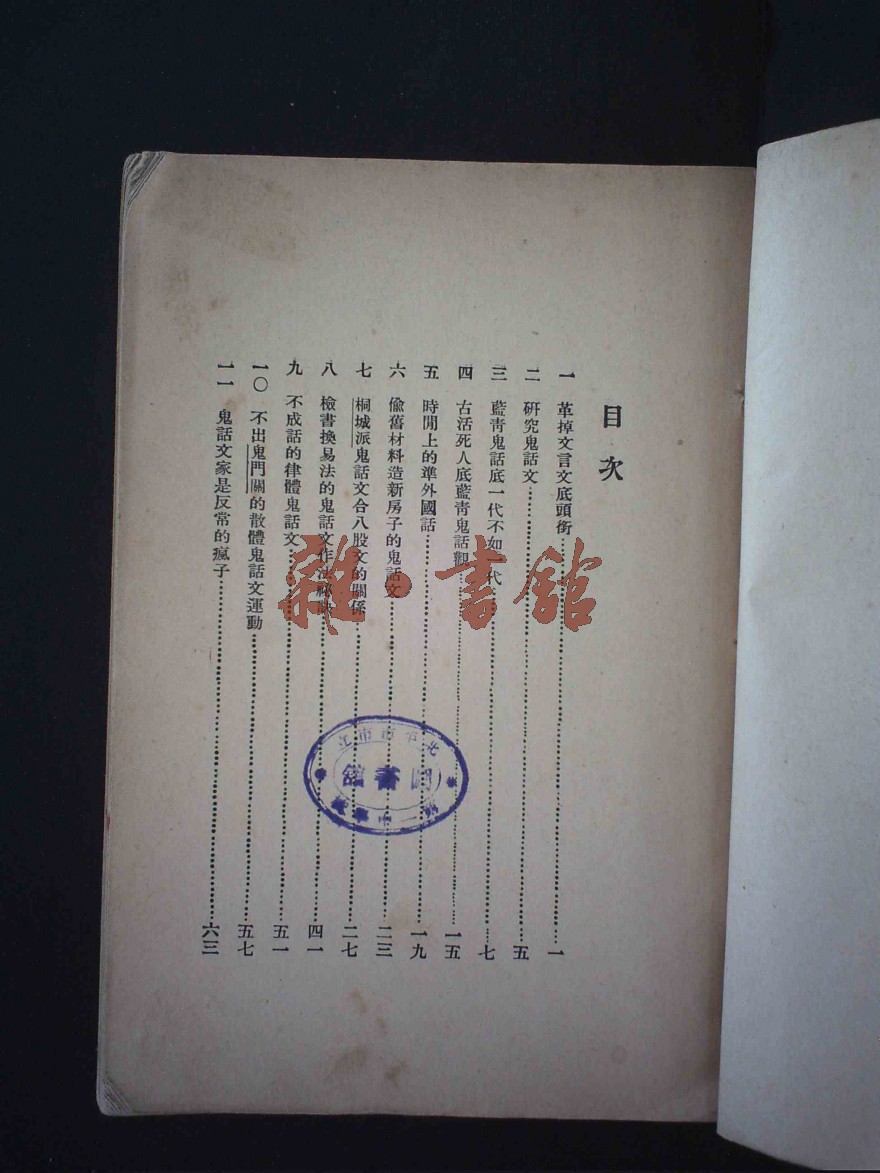 目次
一 革掉文言文底頭銜……一
二 研究鬼話文……五
三 藍青鬼話底一代不如一代……七
四 古活死人底藍青鬼話觀……一五
五 時間上的準外國話……一九
六 偸舊材料造新房子的鬼話文……二三
七 桐城派鬼話文合八股文的關係……二七
八 檢書換易法的鬼話文作法祕訣……四一
九 不成話的律體鬼話文……五一
一〇 不出鬼門關的散體鬼話文運動……五七
一一 鬼話文家是反常的瘋子……六三
雜·書館
北平市市立
圖書館
第一中學校